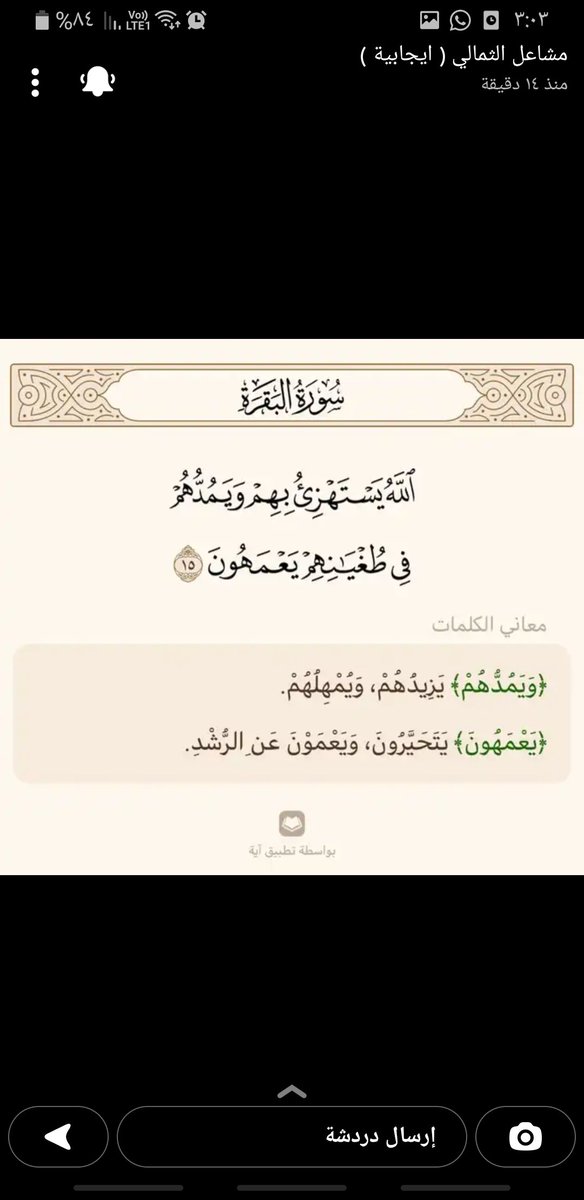 %٨٤ Vo)) LTE1 ٣:٠٣
مشاعل الثمالي ( ايجابية )
منذ ١٤ دقيقة
سُورَةُ البَقَرَةِ
ٱللَّهُ يَسۡتَهۡزِئُ بِهِمۡ وَيَمُدُّهُمۡ
فِي طُغۡيَٰنِهِمۡ يَعۡمَهُونَ ١٥
معاني الكلمات
﴿وَيَمُدُّهُمْ﴾ يَزِيدُهُمْ، وَيُمْهِلُهُمْ.
﴿يَعْمَهُونَ﴾ يَتَحَيَّرُونَ، وَيَعْمَوْنَ عَنِ الرُّشْدِ.
بواسطة تطبيق آية
إرسال دردشة